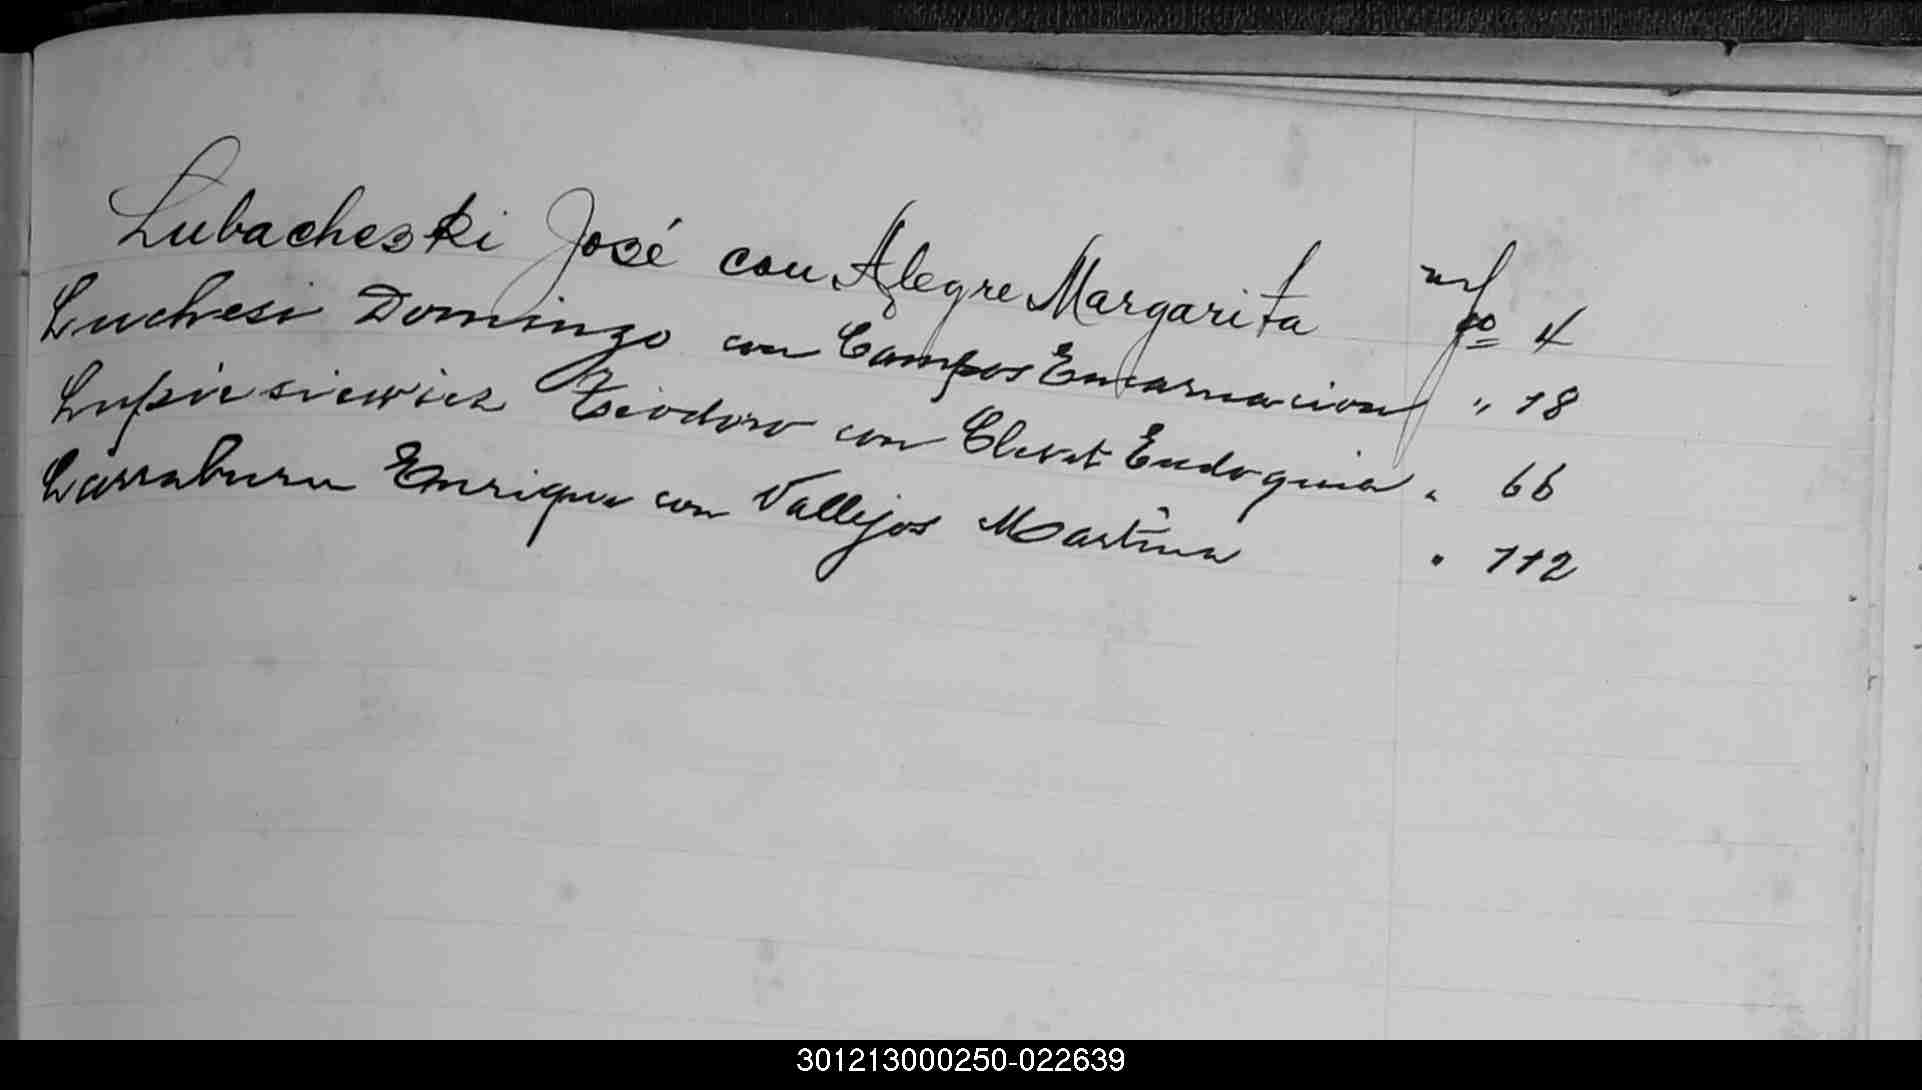 Lubacheski José con Alegre Margarita fo 4
Luchesi Domingo con Campos Encarnacion " 18
Lupiesiewicz Teodoro con Clevet Eudoquia " 66
Larraburu Enrique con Vallejos Martina " 112
301213000250-022639